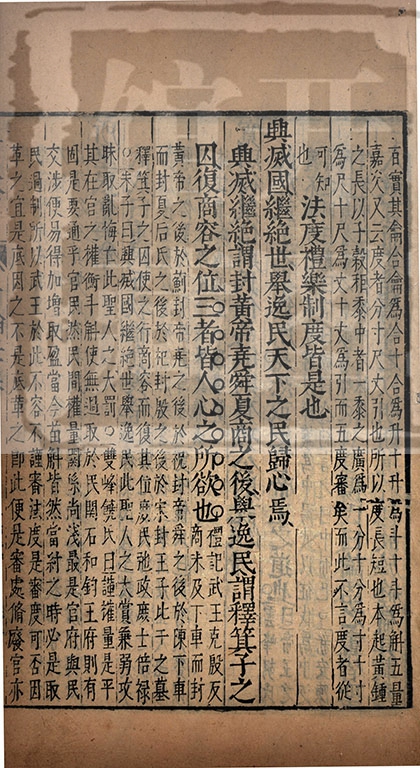 百實其侖合侖為合十合為升十升為斗十斗為斛五量
嘉矣又云度者分寸尺丈引也所以度長短也本起黃鍾
之長以子穀秬黍中者一黍之廣為一分十分為寸十寸
為尺十尺為丈十丈為引而五度審矣而此不言度者從
可知
也
法度禮樂制度皆是也
興滅國繼絕世舉逸民天下之民歸心焉
興滅繼絕謂封黃帝堯舜夏商之後舉逸民謂釋箕子之
囚復商容之位三者皆人心之所欲也
禮記武王克殷反
商未及下車而封
黃帝之後於薊封帝堯之後於祝封帝舜之後於陳下車
而封夏后氏之後於杞封殷之後於宋封王子比干之墓
釋箕子之囚使之行商容而復其位庶民弛政庶士倍祿
○朱子曰興滅國繼絕世舉逸民此聖人之大賞兼弱攻
昧取亂侮亡此聖人之大罰○雙峰饒氏曰謹權量是平
其在官之權衡斗斛使無過取於民關石和鈞王府則有
固是要通乎官民然民間權量關係尚淺最是官府與民
交涉便易得加增取盈當今苗斛皆然當紂之時必是取
民過制所以武王於此不容不謹審法度是審度可否因
革之宜是底因之不是底革之即此便是審處脩廢官亦